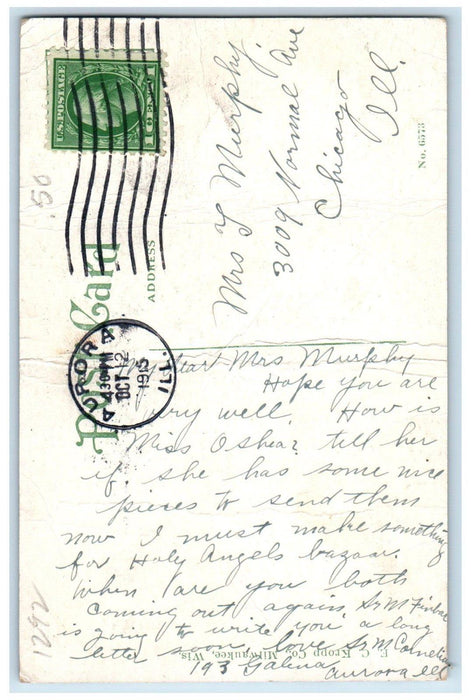 U.S. POSTAGE
1 CENT 1
AURORA
4 30 PM
OCT 12
1915
ILL.
Post Card
ADDRESS
Mrs T Murphy
3009 Normal Ave
Chicago
Ill.
No. 6573
.50
1292
My dear Mrs Murphy
Hope you are
very well. How is
Miss O'Shea? tell her
if she has some nice
pieces to send them
now I must make something
for Holy Angels bazaar.
When are you both
coming out again, Sr M Finbar
is going to write you a long
letter soon, love Sr M Cornelia
193 Galena
Aurora Ill
E. C. Kropp Co., Milwaukee, Wis.